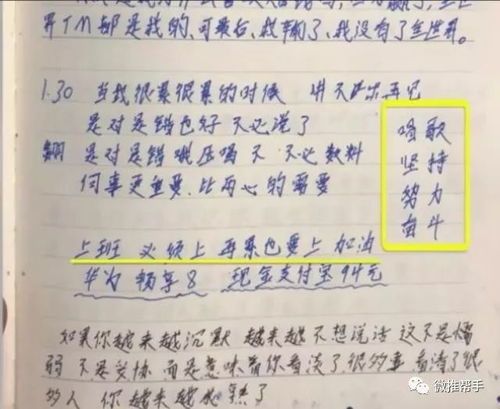 界TM都是我的、可最后、我输了、我没有了全世界。
1.30 当我很累很累的时候 讲不出再见
是对是错也好 不必说了
是对是错 不 不必数料
何事更重要 比两心的需要
唱歌
坚持
努力
奋斗
上班 必须上 再累也要上 加油
华为 畅享8 现金支付宝94元
如果你越来越沉默 越来越不想说话 这不是懦
弱 不是妥协 而是意味着你看淡了很多事 看清了很
多人 你越来越成熟了
微推帮手